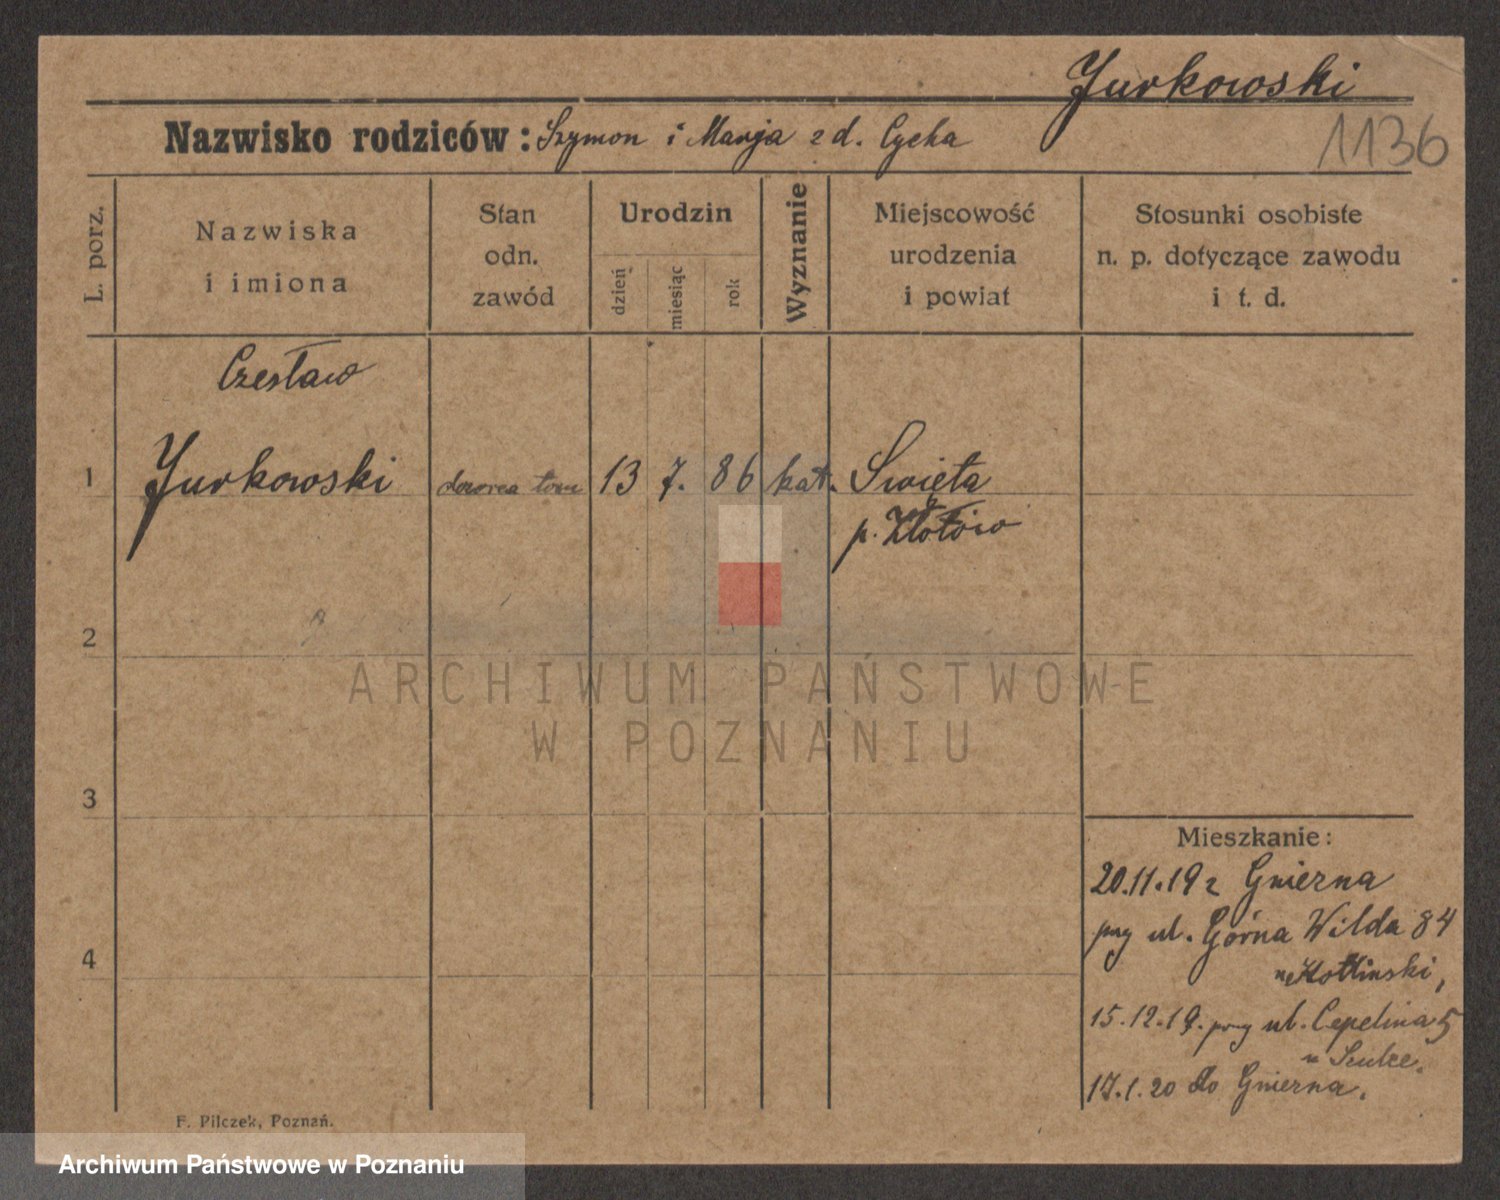 Jurkowski
Nazwisko rodziców: Szymon i Marja z d. Cyeka
1136
L. porz.
Nazwiska
i imiona
Stan
odn.
zawód
Urodzin
dzień
miesiąc
rok
Wyznanie
Miejscowość
urodzenia
i powiat
Stosunki osobiste
n. p. dotyczące zawodu
i t. d.
Czesław
1 Jurkowski 13 7. 86 kat. Święta
p. Złotów
2
3
4
ARCHIWUM PAŃSTWOWE
W POZNANIU
Mieszkanie:
20.11.19 z Gniezna
przy ul. Górna Wilda 84
u Kotlinski,
15.12.19. przy ul. Cepelina 5
u Szulce.
17.1.20 do Gniezna.
F. Pilczek, Poznań.
Archiwum Państwowe w Poznaniu